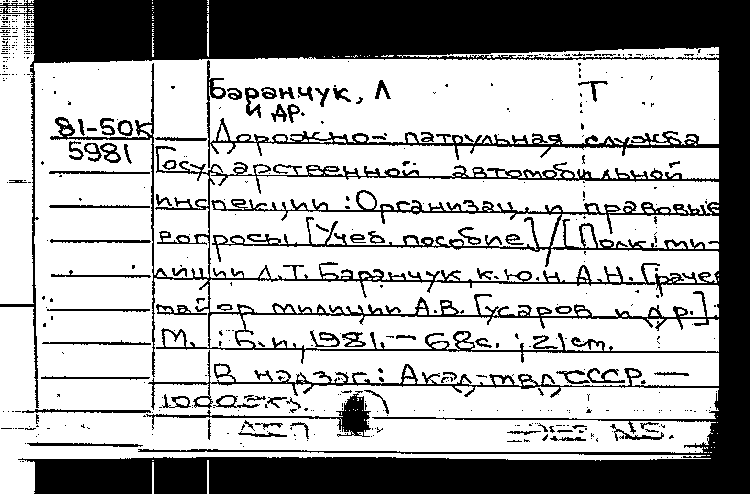 Баранчук, Л Т
и др.
81-50К
5981
Дорожно-патрульная служба
Государственной автомобильной
инспекции : Организац. и правовые
вопросы. [Учеб. пособие] / [Полк. ми-
лиции Л.Т. Баранчук, к.ю.н. А.Н. Грачев
майор милиции А.В. Гусаров и др.].
М. : Б. и., 1981. — 68с. ; 21 см.
В надзаг.: Акад. МВД СССР. —
1000экз.